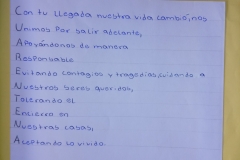 Con tu llegada nuestra vida cambió, nos
Unimos Por salir adelante,
Apoyándonos de manera
Responsable
Evitando contagios y tragedias, cuidando a
Nuestros seres queridos,
Tolerando el
Encierro en
Nuestras casas,
Aceptando lo vivido.